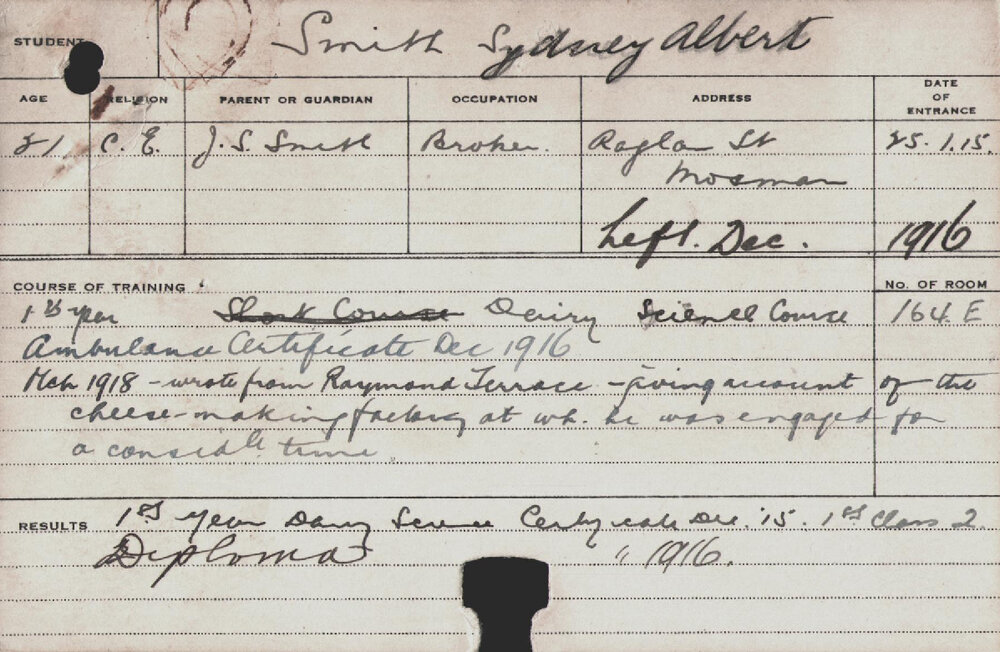 STUDENT Smith Sydney Albert
AGE RELIGION PARENT OR GUARDIAN OCCUPATION ADDRESS DATE OF ENTRANCE
21 C. E. J. S. Smith Broker. Raglan St 25. 1. 15.
Mosman
Left. Dec. 1916
COURSE OF TRAINING No. OF ROOM
1st year Short Course Dairy Science Course 164 E
Ambulance Certificate Dec 1916
Mch 1918 - wrote from Raymond Terrace - giving account of the
cheese-making factory at wh. he was engaged for
a considble time.
RESULTS 1st year Dairy Science Certificate Dec. '15. 1st Class 2
Diploma " 1916.